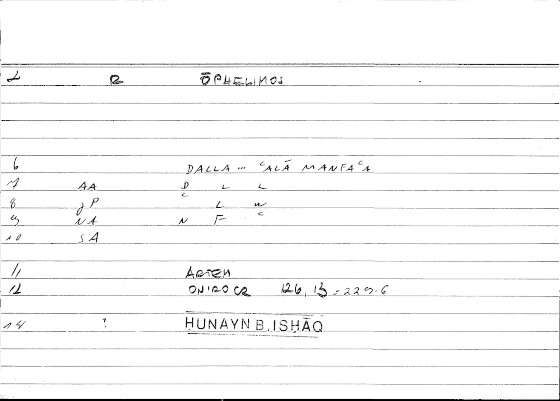 1 R ŌPHELIMOS
6 DALLA ... ʿALĀ MANFAʿA
7 AA D L L
8 JP ʿ L W
9 NA N F ʿ
10 SA
11 ARTEM
12 ONIROCR 126, 13 = 229.6
14 ? ḤUNAYN B. ISḤĀQ